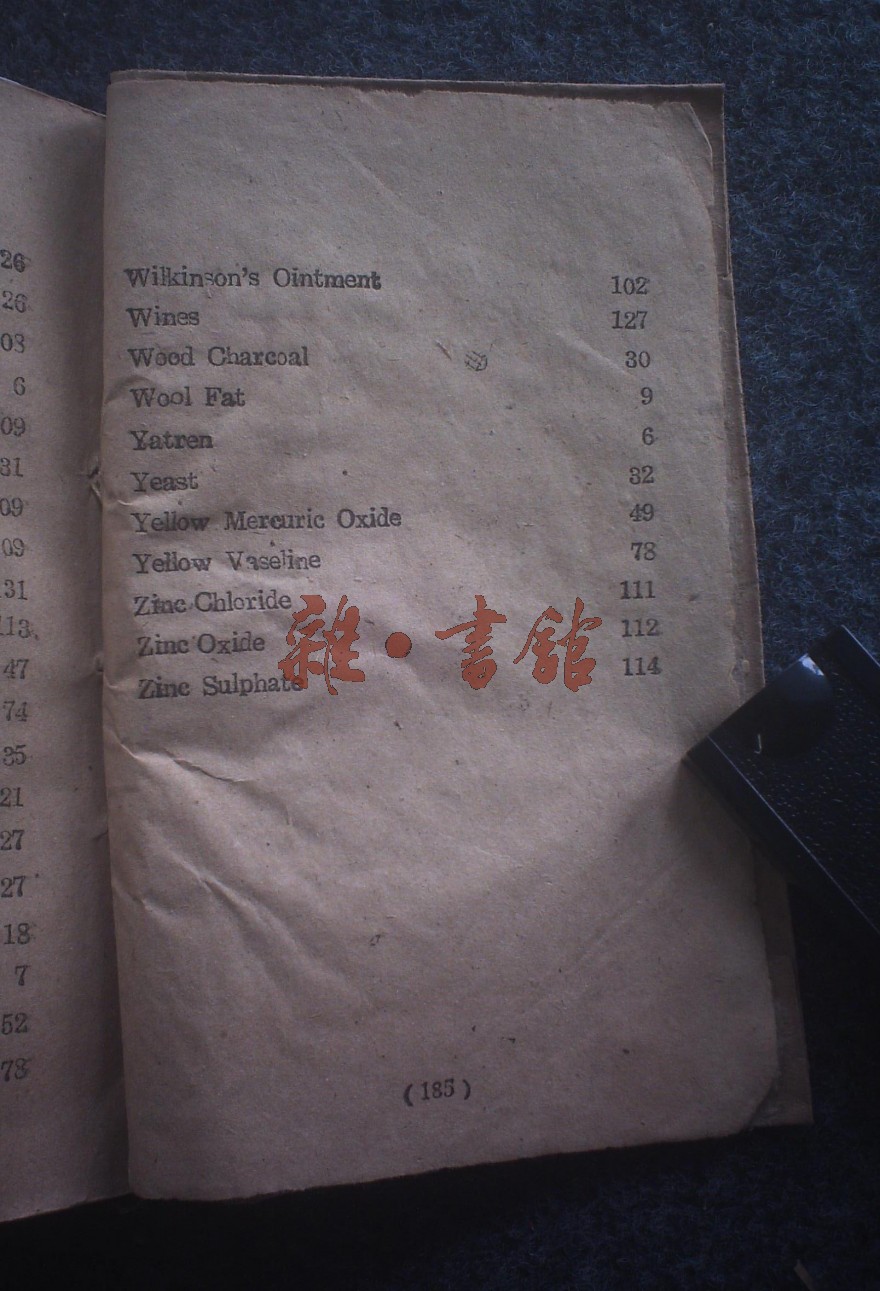 26
26
03
6
09
31
09
09
31
113
47
74
35
21
27
27
18
7
52
78
Wilkinson's Ointment 102
Wines 127
Wood Charcoal 30
Wool Fat 9
Yatren 6
Yeast 32
Yellow Mercuric Oxide 49
Yellow Vaseline 78
Zinc Chloride 111
Zinc Oxide 112
Zinc Sulphate 114
雜·書館
(185)